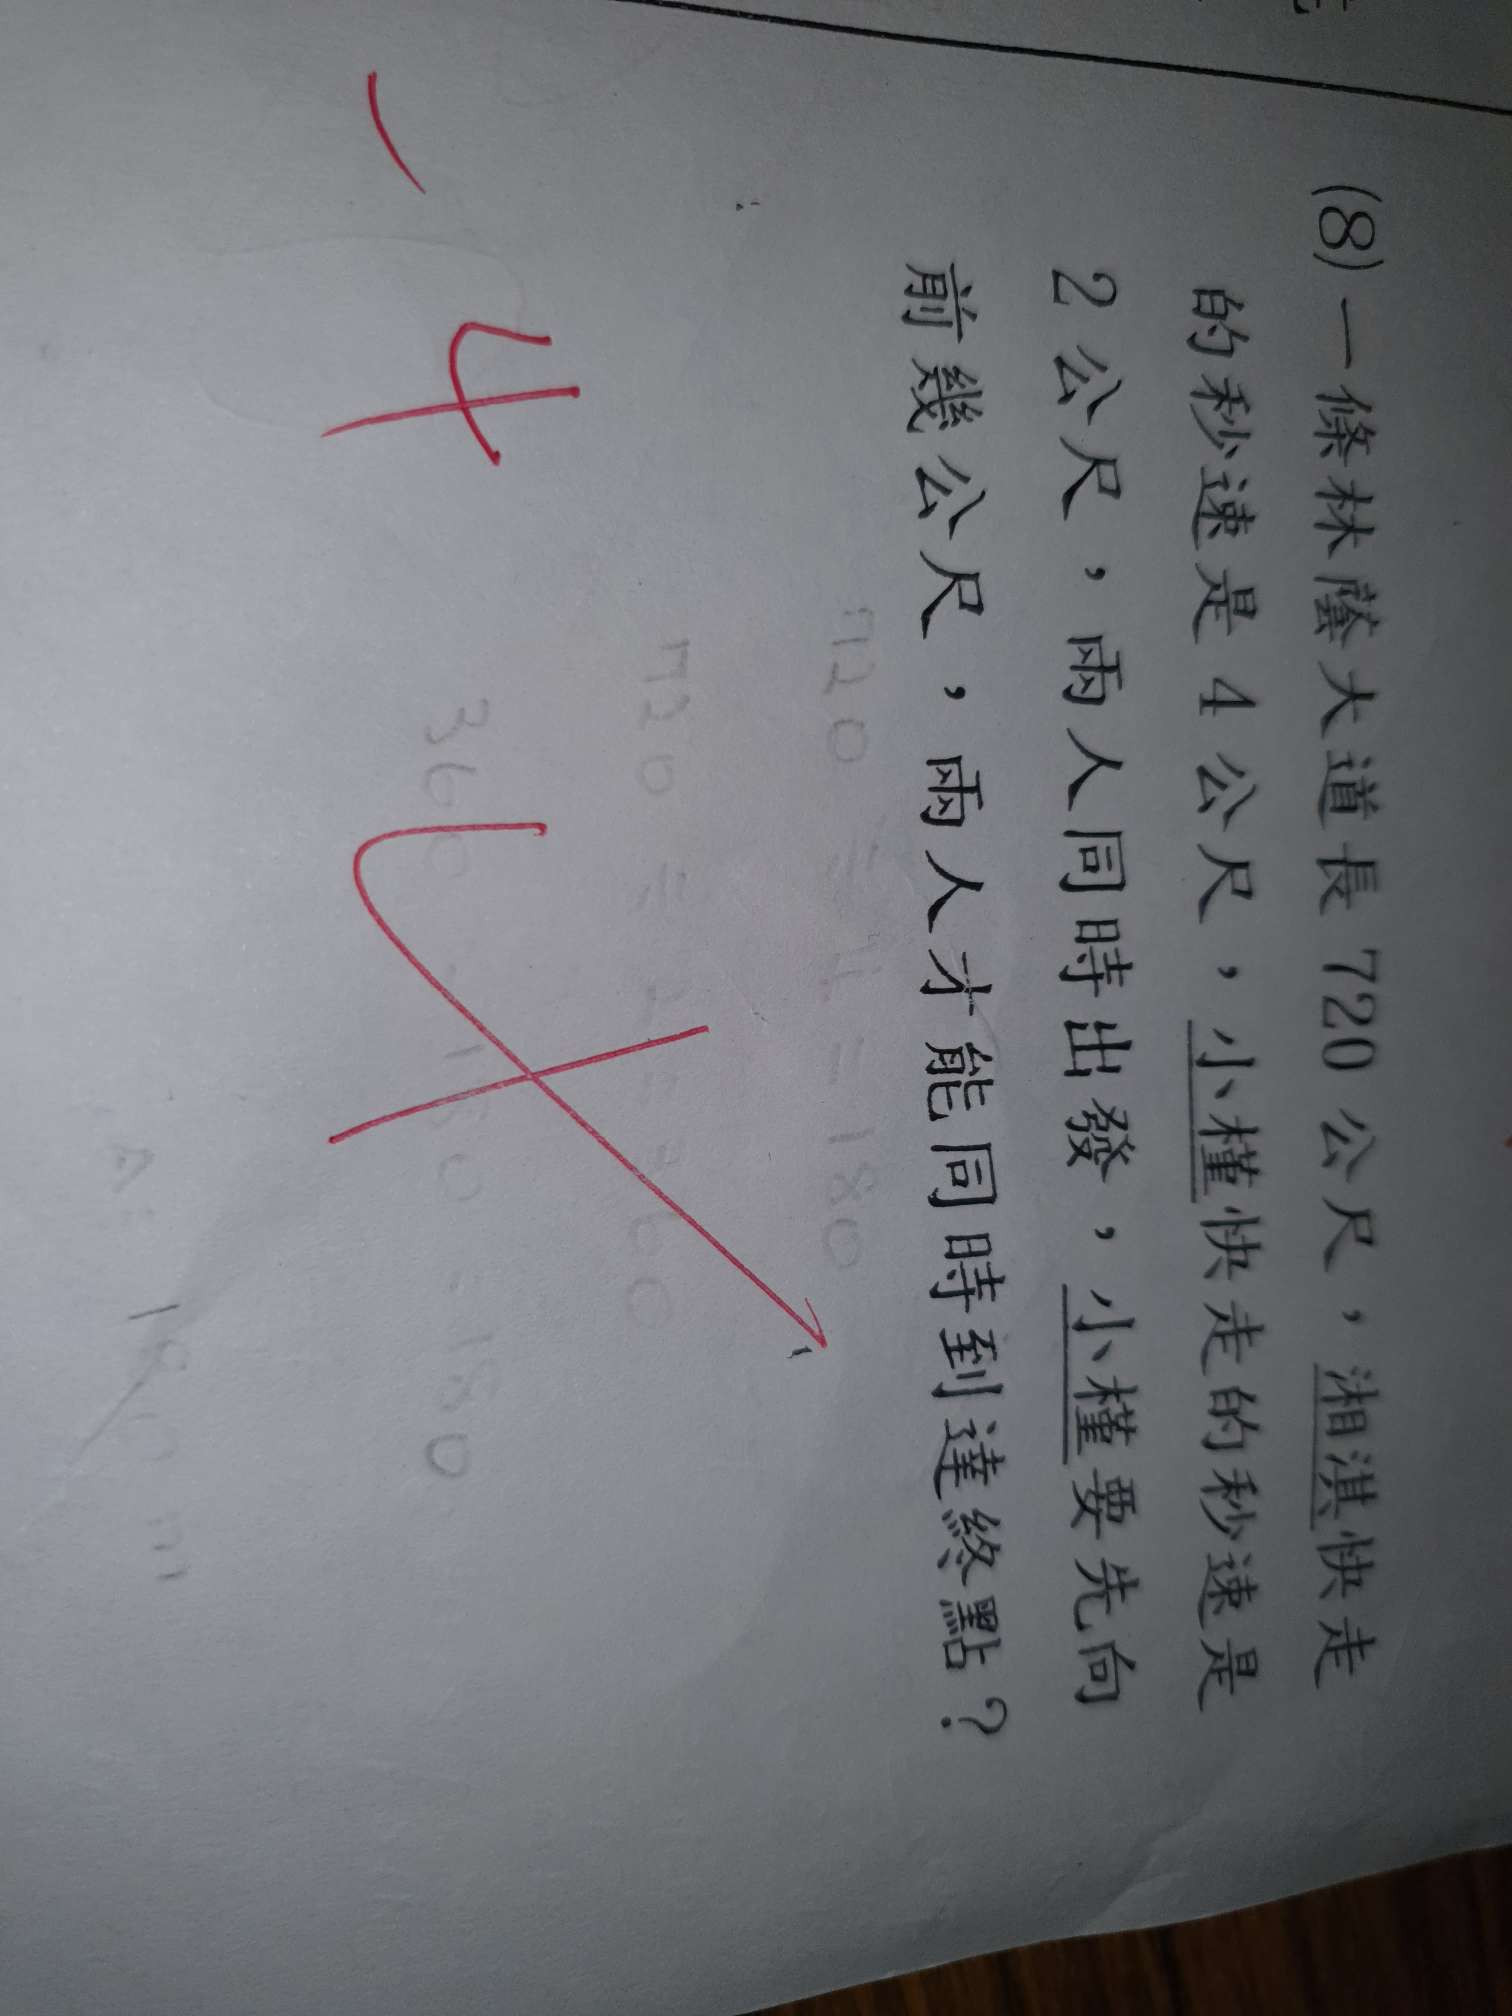 (8)一條林蔭大道長720公尺，湘淇快走
的秒速是4公尺，小槿快走的秒速是
2公尺，兩人同時出發，小槿要先向
前幾公尺，兩人才能同時到達終點？
720÷4=180
720÷2=360
360-180=180
A:180m
-4